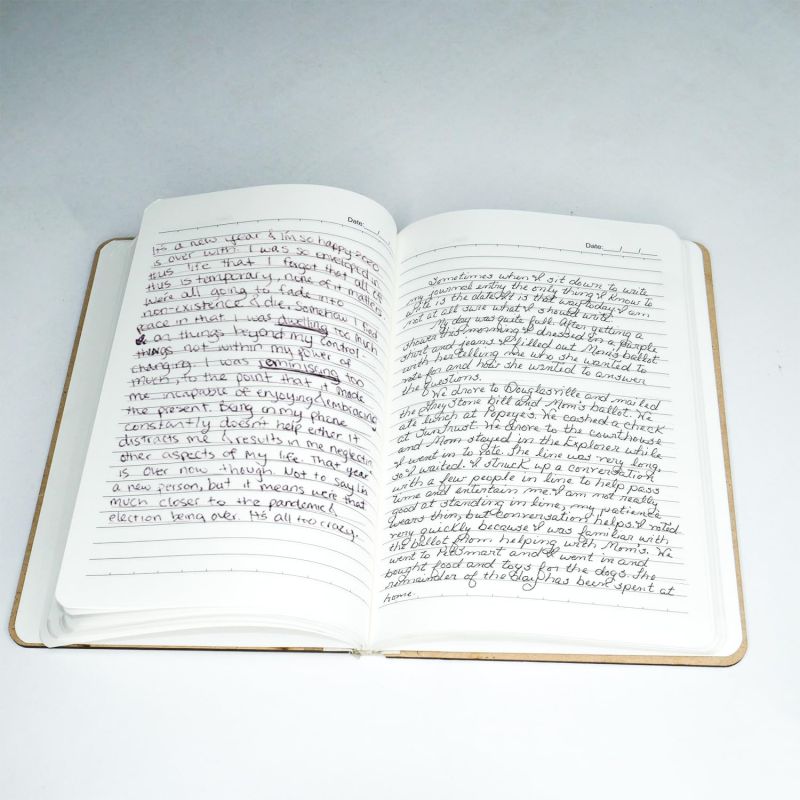 Date: / /
It's a new year & I'm so happy 2020
is over with. I was so enveloped in
this life that I forgot that all of
this is temporary, none of it matters.
Were all going to fade into
non-existence & die. Somehow I find
peace in that. I was dwelling too much
& on things beyond my control
things not within my power of
changing. I was reminiscing too
much, to the point that it made
me incapable of enjoying & embracing
the present. Being on my phone
constantly doesn't help either. It
distracts me & results in me neglecting
other aspects of my life. That year
is over now though. Not to say I'm
a new person, but it means were that
much closer to the pandemic &
election being over. It's all too crazy.
Date: / /
Sometimes when I sit down to write
my journal entry the only thing I know to
write is the date. It is that way today. I am
not at all sure what I should write.
My day was quite full. After getting a
shower this morning I dressed in a purple
shirt and jeans. I filled out Mom's ballot
with her telling me who she wanted to
vote for and how she wanted to answer
the questions.
We drove to Douglasville and mailed
the Greystone bill and Mom's ballot. We
ate lunch at Popeyes. We cashed a check
at SunTrust. We drove to the courthouse
and Mom stayed in the Explorer while
I went in to vote. The line was very long,
so I waited. I struck up a conversation
with a few people in line to help pass
time and entertain me. I am not really
good at standing in line, my patience
wears thin, but conversation helps. I voted
very quickly because I was familiar with
the ballot from helping with Moms. We
went to PetSmart and I went in and
bought food and toys for the dogs. The
remainder of the day has been spent at
home.